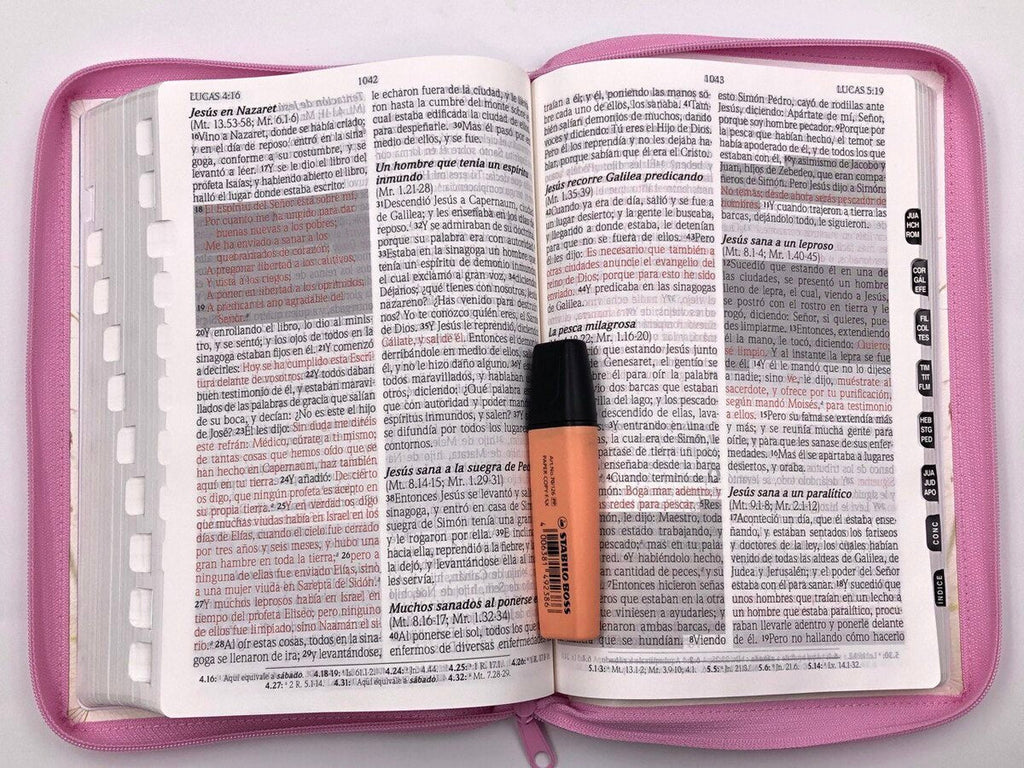 LUCAS 4:16
1042
Jesús en Nazaret
(Mt. 13.53-58; Mr. 6.1-6)
16Vino a Nazaret, donde se había criado;
y en el día de reposo* entró en la sina-
goga, conforme a su costumbre, y se
levantó a leer. 17Y se le dio el libro del
profeta Isaías; y habiendo abierto el libro,
halló el lugar donde estaba escrito:
18 El Espíritu del Señor está sobre mí,
Por cuanto me ha ungido para dar
buenas nuevas a los pobres;
Me ha enviado a sanar a los
quebrantados de corazón;
A pregonar libertad a los cautivos,
Y vista a los ciegos;
A poner en libertad a los oprimidos;
19 A predicar el año agradable del
Señor.
20Y enrollando el libro, lo dio al minis-
tro, y se sentó; y los ojos de todos en la
sinagoga estaban fijos en él. 21Y comenzó
a decirles: Hoy se ha cumplido esta Escri-
tura delante de vosotros. 22Y todos daban
buen testimonio de él, y estaban maravi-
llados de las palabras de gracia que salían
de su boca, y decían: ¿No es este el hijo
de José? 23Él les dijo: Sin duda me diréis
este refrán: Médico, cúrate a ti mismo;
de tantas cosas que hemos oído que se
han hecho en Capernaum, haz también
aquí en tu tierra. 24Y añadió: De cierto
os digo, que ningún profeta es acepto en
su propia tierra. 25Y en verdad os digo
que muchas viudas había en Israel en los
días de Elías, cuando el cielo fue cerrado
por tres años y seis meses, y hubo una
gran hambre en toda la tierra; 26pero a
ninguna de ellas fue enviado Elías, sino
a una mujer viuda en Sarepta de Sidón.
27Y muchos leprosos había en Israel en
tiempo del profeta Eliseo; pero ninguno
de ellos fue limpiado, sino Naamán el si-
rio. 28Al oír estas cosas, todos en la sina-
goga se llenaron de ira; 29y levantándose,
le echaron fuera de la ciudad, y le
ron hasta la cumbre del monte sobre
cual estaba edificada la ciudad de
para despeñarle. 30Mas él pasó por
medio de ellos, y se fue.
Un hombre que tenía un espíritu
inmundo
(Mr. 1.21-28)
31Descendió Jesús a Capernaum,
de Galilea; y les enseñaba en los días
reposo. 32Y se admiraban de su doctrina,
porque su palabra era con autoridad.
33Estaba en la sinagoga un hombre
tenía un espíritu de demonio inmundo,
el cual exclamó a gran voz, 34diciendo:
Déjanos; ¿qué tienes con nosotros, Jesús
nazareno? ¿Has venido para destruir-
nos? Yo te conozco quién eres, el Santo
de Dios. 35Y Jesús le reprendió, diciendo:
Cállate, y sal de él. Entonces el demonio,
derribándole en medio de ellos, salió
él, y no le hizo daño alguno.
todos maravillados, y hablaban
otros, diciendo: ¿Qué palabra
que con autoridad y poder manda
espíritus inmundos, y salen? 37Y
se difundía por todos los lugares
contornos.
Jesús sana a la suegra de Pedro
(Mt. 8.14-15; Mr. 1.29-31)
38Entonces Jesús se levantó y salió
sinagoga, y entró en casa de Simón
suegra de Simón tenía una gran
y le rogaron por ella. 39E inclinándose
hacia ella, reprendió a la fiebre; y
la dejó, y levantándose ella al
les servía.
Muchos sanados al ponerse el
(Mt. 8.16-17; Mr. 1.32-34)
40Al ponerse el sol, todos los que
enfermos de diversas enfermedades
4.16: *Aquí equivale a sábado. 4.18-19: Is. 61.1-2. 4.24: Jn. 4.44. 4.25: 1 R. 17.1. 4.26:
4.27: 2 R. 5.1-14. 4.31: *Aquí equivale a sábado. 4.32: Mt. 7.28-29.
1043
LUCAS 5:19
traían a él; y él, poniendo las manos so-
bre cada uno de ellos, los sanaba. 41Tam-
bién salían demonios de muchos, dando
voces y diciendo: Tú eres el Hijo de Dios.
Pero él los reprendía y no les dejaba ha-
blar, porque sabían que él era el Cristo.
Jesús recorre Galilea predicando
(Mr. 1.35-39)
42Cuando ya era de día, salió y se fue a
un lugar desierto; y la gente le buscaba,
y llegando a donde estaba, le detenían
para que no se fuera de ellos. 43Pero
Es necesario que también a
otras ciudades anuncie el evangelio del
reino de Dios; porque para esto he sido
enviado. 44Y predicaba en las sinagogas
de Galilea.
La pesca milagrosa
4.18-22; Mr. 1.16-20)
que estando Jesús junto
Genesaret, el gentío se
él para oír la palabra
vio dos barcas que estaban
orilla del lago; y los pescado-
descendido de ellas, lava-
3Y entrando en una de
la cual era de Simón, le
apartase de tierra un poco;
enseñaba desde la barca
4Cuando terminó de ha-
Simón: Boga mar adentro, y
redes para pescar. 5Res-
le dijo: Maestro, toda
estado trabajando, y
pescado; mas en tu palabra
6Y habiéndolo hecho,
cantidad de peces, y su
7Entonces hicieron señas
que estaban en la otra
viniesen a ayudarles; y
llenaron ambas barcas, de
que se hundían. 8Viendo
esto Simón Pedro, cayó de rodillas ante
Jesús, diciendo: Apártate de mí, Señor,
porque soy hombre pecador. 9Porque por
la pesca que habían hecho, el temor se
había apoderado de él, y de todos los que
estaban con él, 10y asimismo de Jacobo y
Juan, hijos de Zebedeo, que eran compa-
ñeros de Simón. Pero Jesús dijo a Simón:
No temas; desde ahora serás pescador de
hombres. 11Y cuando trajeron a tierra las
barcas, dejándolo todo, le siguieron.
Jesús sana a un leproso
(Mt. 8.1-4; Mr. 1.40-45)
12Sucedió que estando él en una de
las ciudades, se presentó un hombre
lleno de lepra, el cual, viendo a Jesús,
se postró con el rostro en tierra y le
rogó, diciendo: Señor, si quieres, pue-
des limpiarme. 13Entonces, extendiendo
él la mano, le tocó, diciendo: Quiero;
sé limpio. Y al instante la lepra se fue
de él. 14Y él le mandó que no lo dijese
a nadie; sino ve, le dijo, muéstrate al
sacerdote, y ofrece por tu purificación,
según mandó Moisés, para testimonio
a ellos. 15Pero su fama se extendía más
y más; y se reunía mucha gente para
oírle, y para que les sanase de sus enfer-
medades. 16Mas él se apartaba a lugares
desiertos, y oraba.
Jesús sana a un paralítico
(Mt. 9.1-8; Mr. 2.1-12)
17Aconteció un día, que él estaba ense-
ñando, y estaban sentados los fariseos
y doctores de la ley, los cuales habían
venido de todas las aldeas de Galilea, de
Judea y Jerusalén; y el poder del Señor
estaba con él para sanar. 18Y sucedió que
unos hombres que traían en un lecho a
un hombre que estaba paralítico, procu-
raban llevarle adentro y ponerle delante
de él. 19Pero no hallando cómo hacerlo
5.1-3: Mt. 13.1-2; Mr. 3.9-10; 4.1. 5.5: Jn. 21.3. 5.6: Jn. 21.6. 5.14: Lv. 14.1-32.
JUA
HCH
ROM
COR
GÁL
EFE
FIL
COL
TES
TIM
TIT
FLM
HEB
STG
PED
JUA
JUD
APO
CONC
ÍNDICE
STABILO BOSS
4 006381 492386
Art.-No. 70/126
PAPER-COPY-FAX